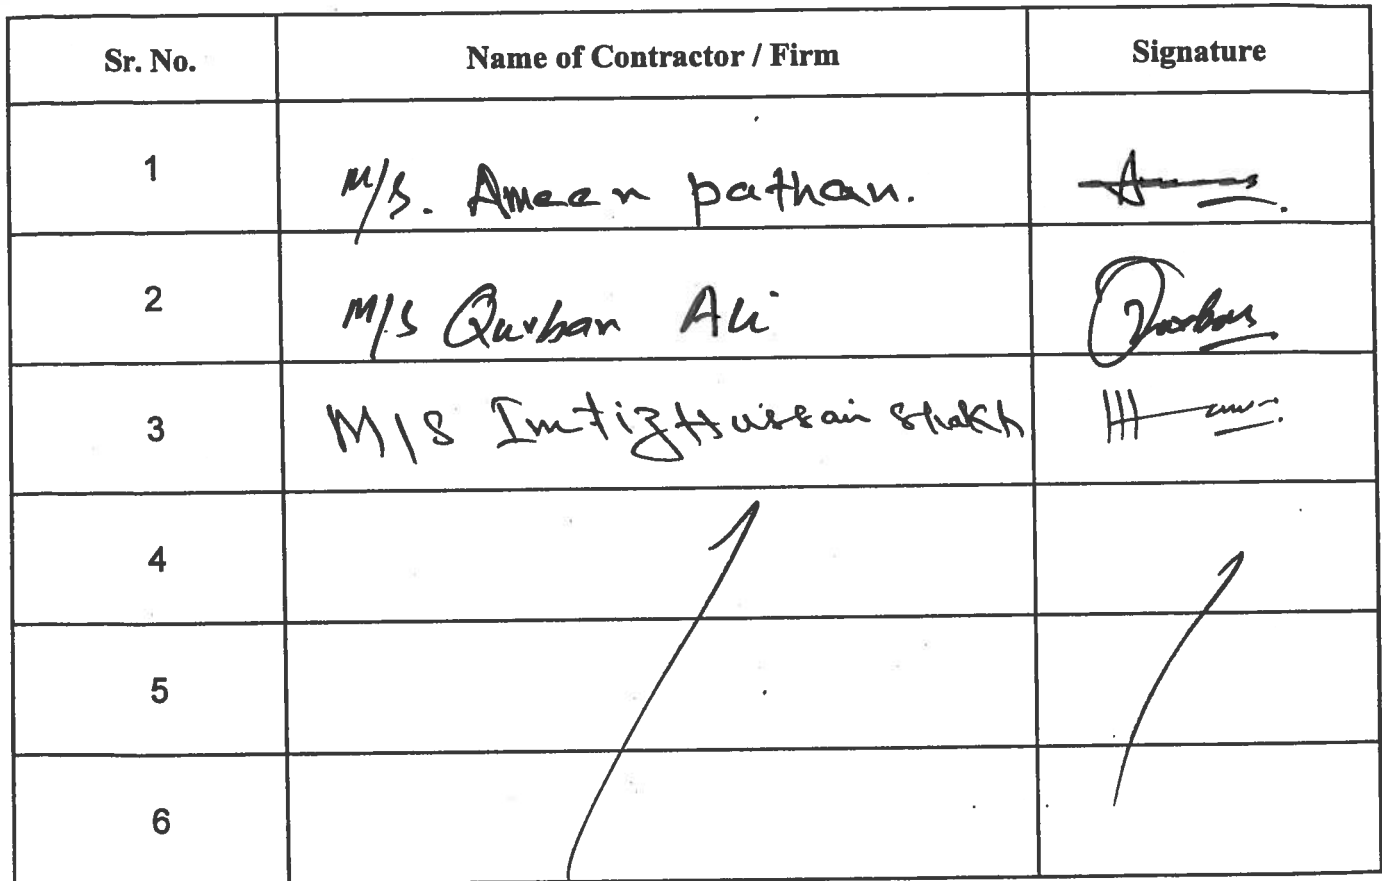 Sr. No. Name of Contractor / Firm Signature
1 M/S. Ameen pathan.
2 M/S Qurban Ali
3 M/S Imtiz Hussain Shakh
4
5
6